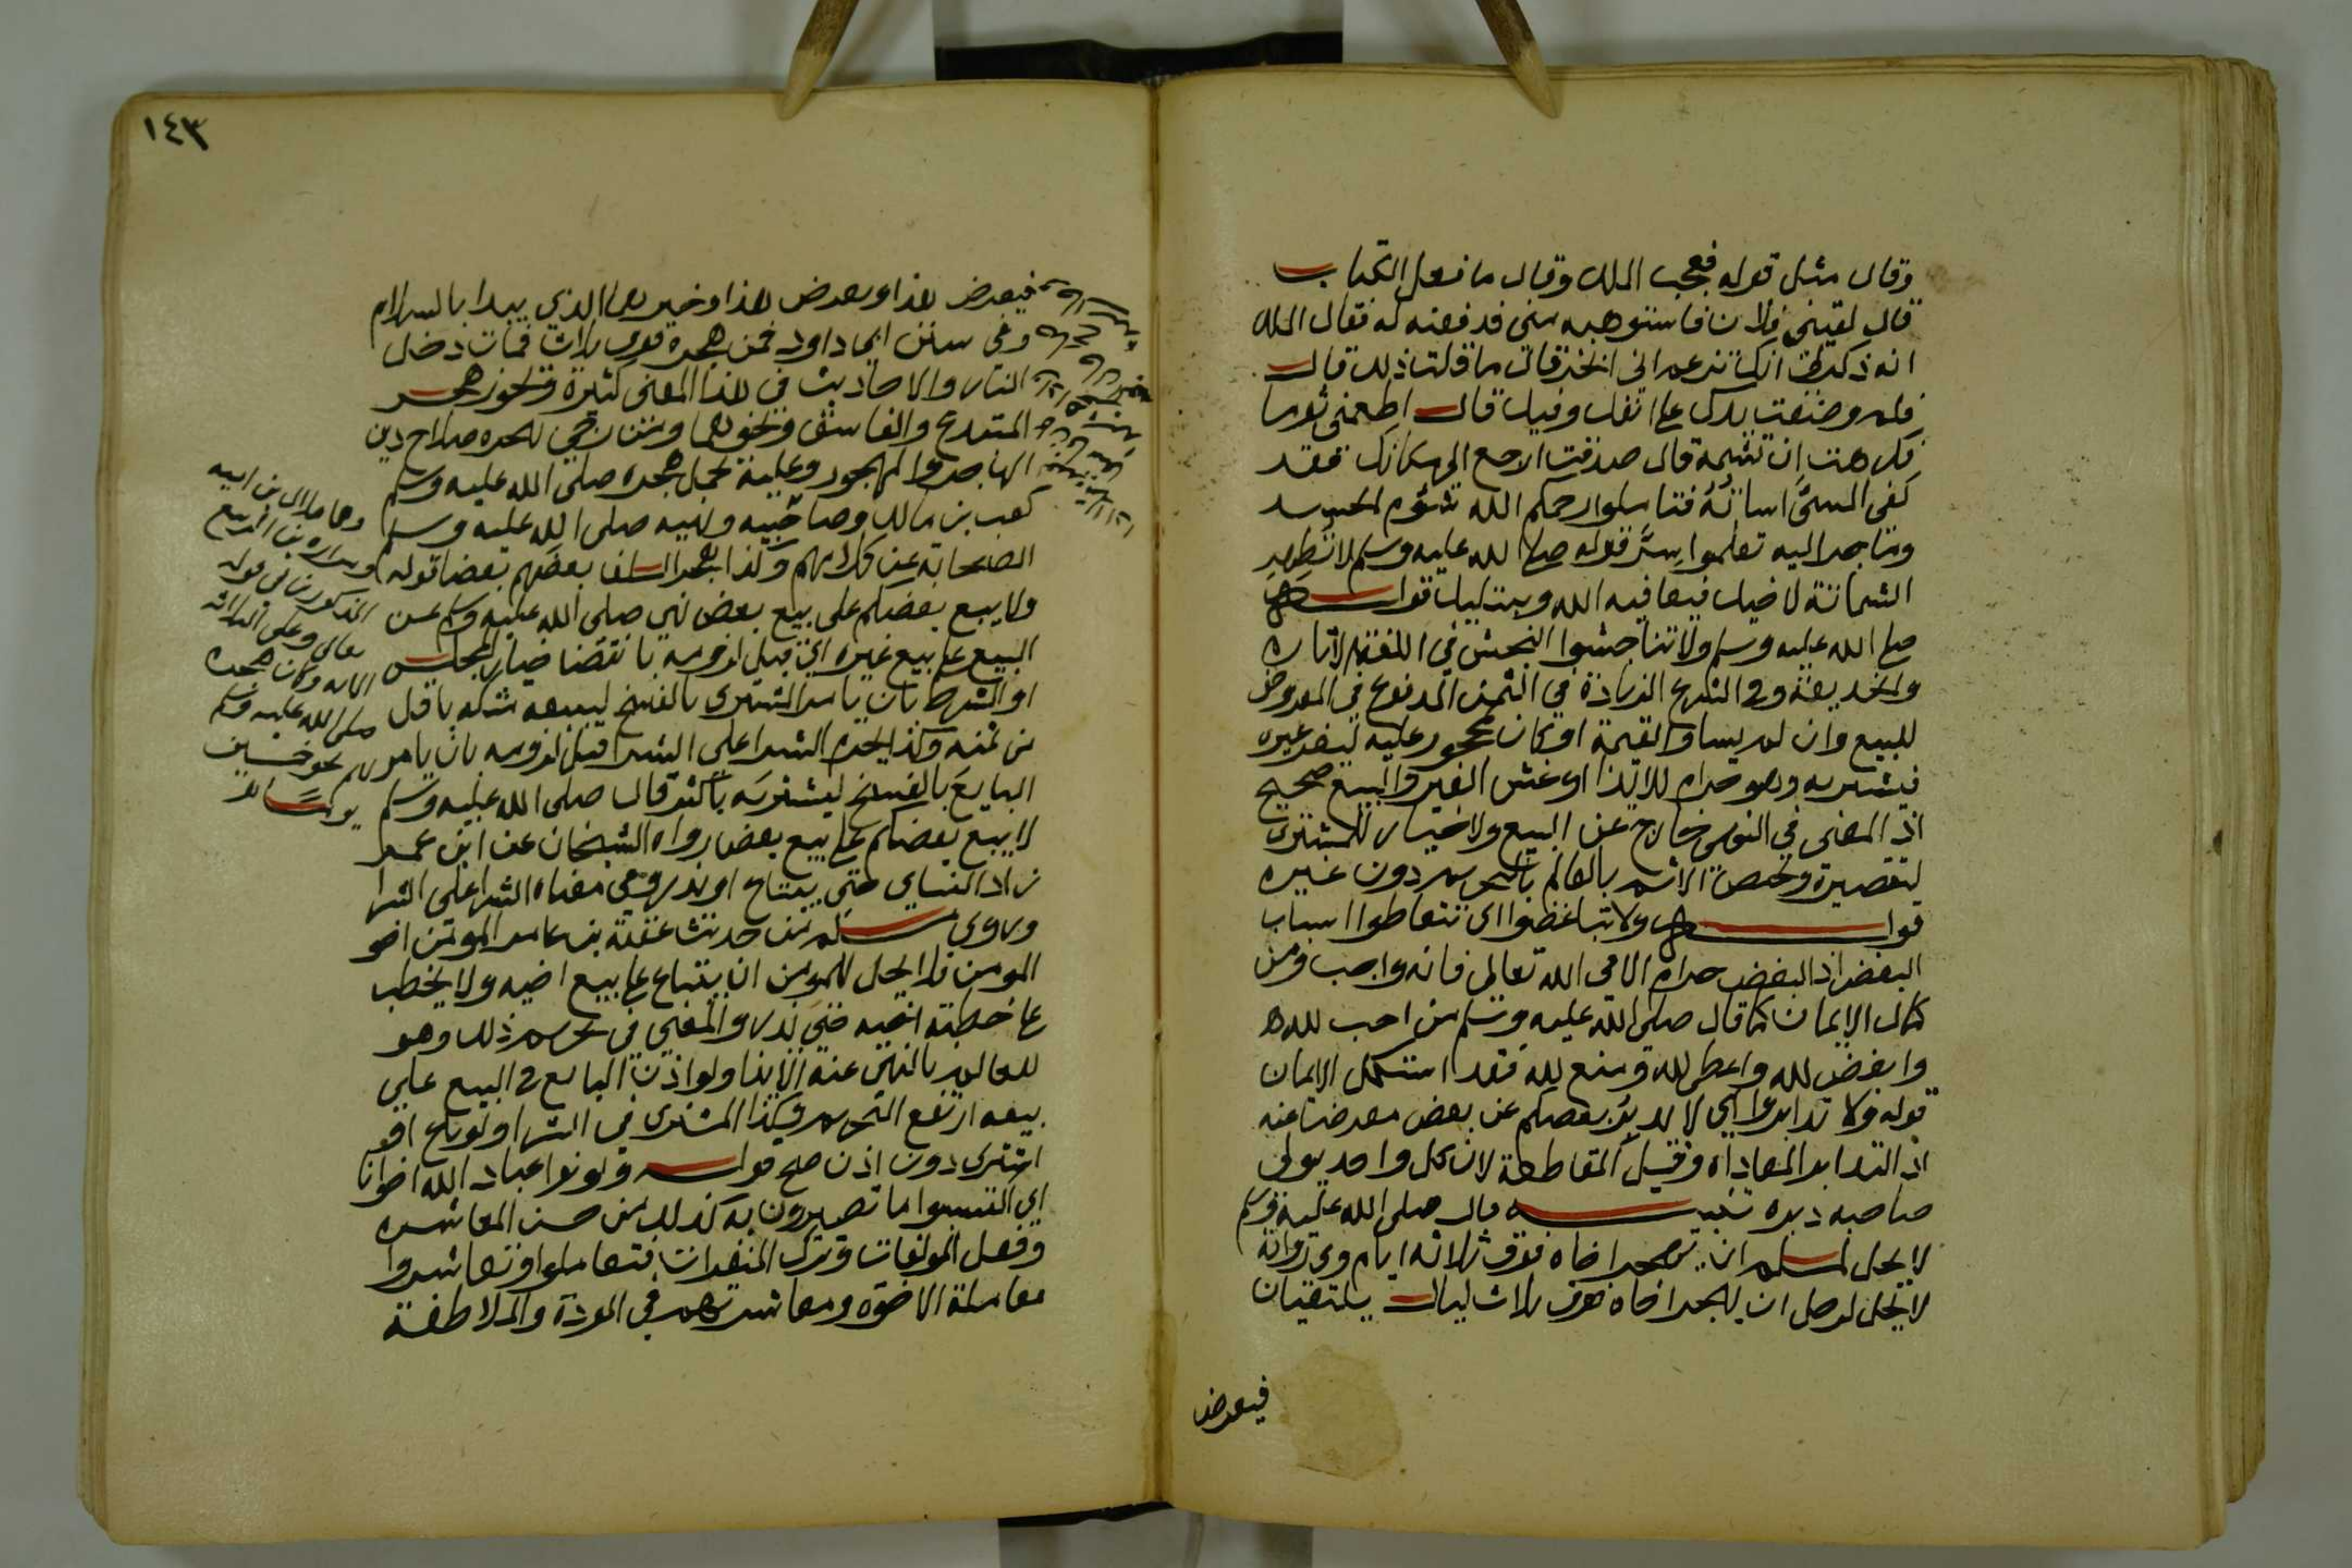 وقال مثل قوله فعجب الملك وقال ما فعل الكتاب
قال لقيني فلان فاستوهبه مني فدفعته له فقال الملك
انه ذكر لي انك تزعم اني ابخر قال ما قلت ذلك قال
فلم وضعت يدك على انفك وفيك قال اطعمني ثوما
فكرهت ان تشمه قال صدقت ارجع الى مكانك فقد
كفى المسيء اساتُه فتاملوا رحمكم الله شؤم الحسد
وما جر اليه تعلموا سِرَّ قوله صلى الله عليه وسلم لا تُظهِر
الشماتة لاخيك فيعافيه الله ويبتليك قوله
صلى الله عليه وسلم ولا تناجشوا النجش في اللغة الاثارة
والخديعة وفي الشرع الزيادة في الثمن المدفوع في المعروض
للبيع وان لم يساو القيمة او كان لمحجور عليه ليغر غيره
فيشتريه وهو حرام للايذا او غش الغير والبيع صحيح
اذ المعنى في النهي خارج عن البيع ولا خيار للمشتري
لتقصيره ويختص الاثم بالعالم بالتحريم دون غيره
قوله ولا تباغضوا اي تتعاطوا اسباب
البغض اذ البغض حرام الا في الله تعالى فانه واجب ومن
كمال الايمان كما قال صلى الله عليه وسلم من احب لله
وابغض لله واعطى لله ومنع لله فقد استكمل الايمان
قوله ولا تدابروا اي لا يدبر بعضكم عن بعض معرضا عنه
اذ التدابر المعاداة وقيل المقاطعة لان كل واحد يولي
صاحبه دبره تنبيه قال صلى الله عليه وسلم
لا يحل لمسلم ان يهجر اخاه فوق ثلاثه ايام وفي رواية
لا يحل لرجل ان يهجر اخاه فوق ثلاث ليال يلتقيان
فيعرض
١٤٣
فيعرض هذا ويعرض هذا وخيرهما الذي يبدا بالسلام
وفي سنن ابي داود فمن هجره فوق ثلاث فمات دخل
النار والاحاديث في هذا المعنى كثيرة ويجوز هجر
المبتدع والفاسق ونحوهما ومن رجي بهجره صلاح دين
الهاجر والمهجور وعليه يحمل هجره صلى الله عليه وسلم
كعب بن مالك وصاحبيه ونهيه صلى الله عليه وسلم
الصحابة عن كلامهم وكذا هجر السلف بعضهم بعضا قوله
ولا يبع بعضكم على بيع بعض نهى صلى الله عليه وسلم عن
البيع على بيع غيره اي قبل لزومه بانقضا خيار المجلس
او الشرط بان يامر المشتري بالفسخ ليبيعه مثله باقل
من ثمنه وكذا يحرم الشرا على الشرا قبل لزومه بان يامر
البايع بالفسخ ليشتريه باكثر قال صلى الله عليه وسلم
لا يبيع بعضكم على بيع بعض رواه الشيخان عن ابن عمر
زاد النساي حتى يبتاع او يذر وفي معناه الشرا على الشرا
وروى مسلم من حديث عقبة بن عامر المومن اخو
المومن فلا يحل للمومن ان يبتاع على بيع اخيه ولا يخطب
على خطبة اخيه حتى يذر والمعنى في تحريم ذلك وهو
للعالم بالنهي عنه الايذا ولو اذن البايع في البيع على
بيعه ارتفع التحريم وكذا المشتري في الشرا ولو باع او
اشترى دون اذن صح قوله وكونوا عباد الله اخوانا
اي اكتسبوا ما تصيرون به كذلك من حسن المعاشره
وفعل المولفات وترك المنفرات فتعاملوا وتعاشروا
معاملة الاخوه ومعاشرتهم في المودة والملاطفة
وهما هلال بن اميه
ومراره بن الربيع
المذكورين في قوله
تعالى وعلى الثلاثه
الايه وكان هجره
صلى الله عليه وسلم
لهم نحو خمسين
يوما